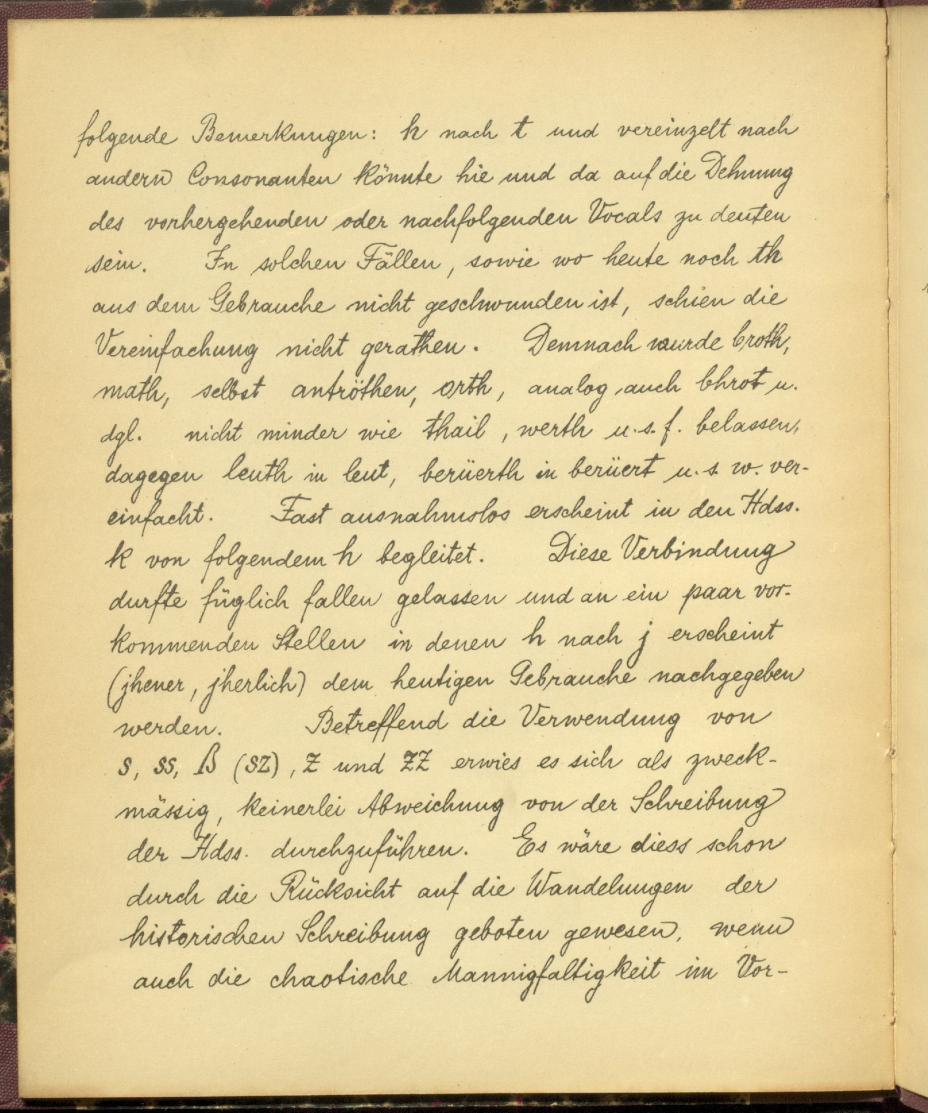 folgende Bemerkungen: h nach t und vereinzelt nach
andern Consonanten könnte hie und da auf die Dehnung
des vorhergehenden oder nachfolgenden Vocals zu deuten
sein. In solchen Fällen, sowie wo heute noch th
aus dem Gebrauche nicht geschwunden ist, schien die
Vereinfachung nicht gerathen. Demnach wurde broth,
math, selbst antröthen, orth, analog auch bhrot u.
dgl. nicht minder wie thail, werth u.s.f. belassen,
dagegen leuth in leut, berüerth in berüert u.s.w. ver-
einfacht. Fast ausnahmslos erscheint in den Hdss.
k von folgendem h begleitet. Diese Verbindung
durfte füglich fallen gelassen und an ein paar vor-
kommenden Stellen in denen h nach j erscheint
(jhener, jherlich) dem heutigen Gebrauche nachgegeben
werden. Betreffend die Verwendung von
s, ss, ß (sz), z und zz erwies es sich als zweck-
mässig, keinerlei Abweichung von der Schreibung
der Hdss. durchzuführen. Es wäre diess schon
durch die Rücksicht auf die Wandelungen der
historischen Schreibung geboten gewesen, wenn
auch die chaotische Mannigfaltigkeit im Vor-